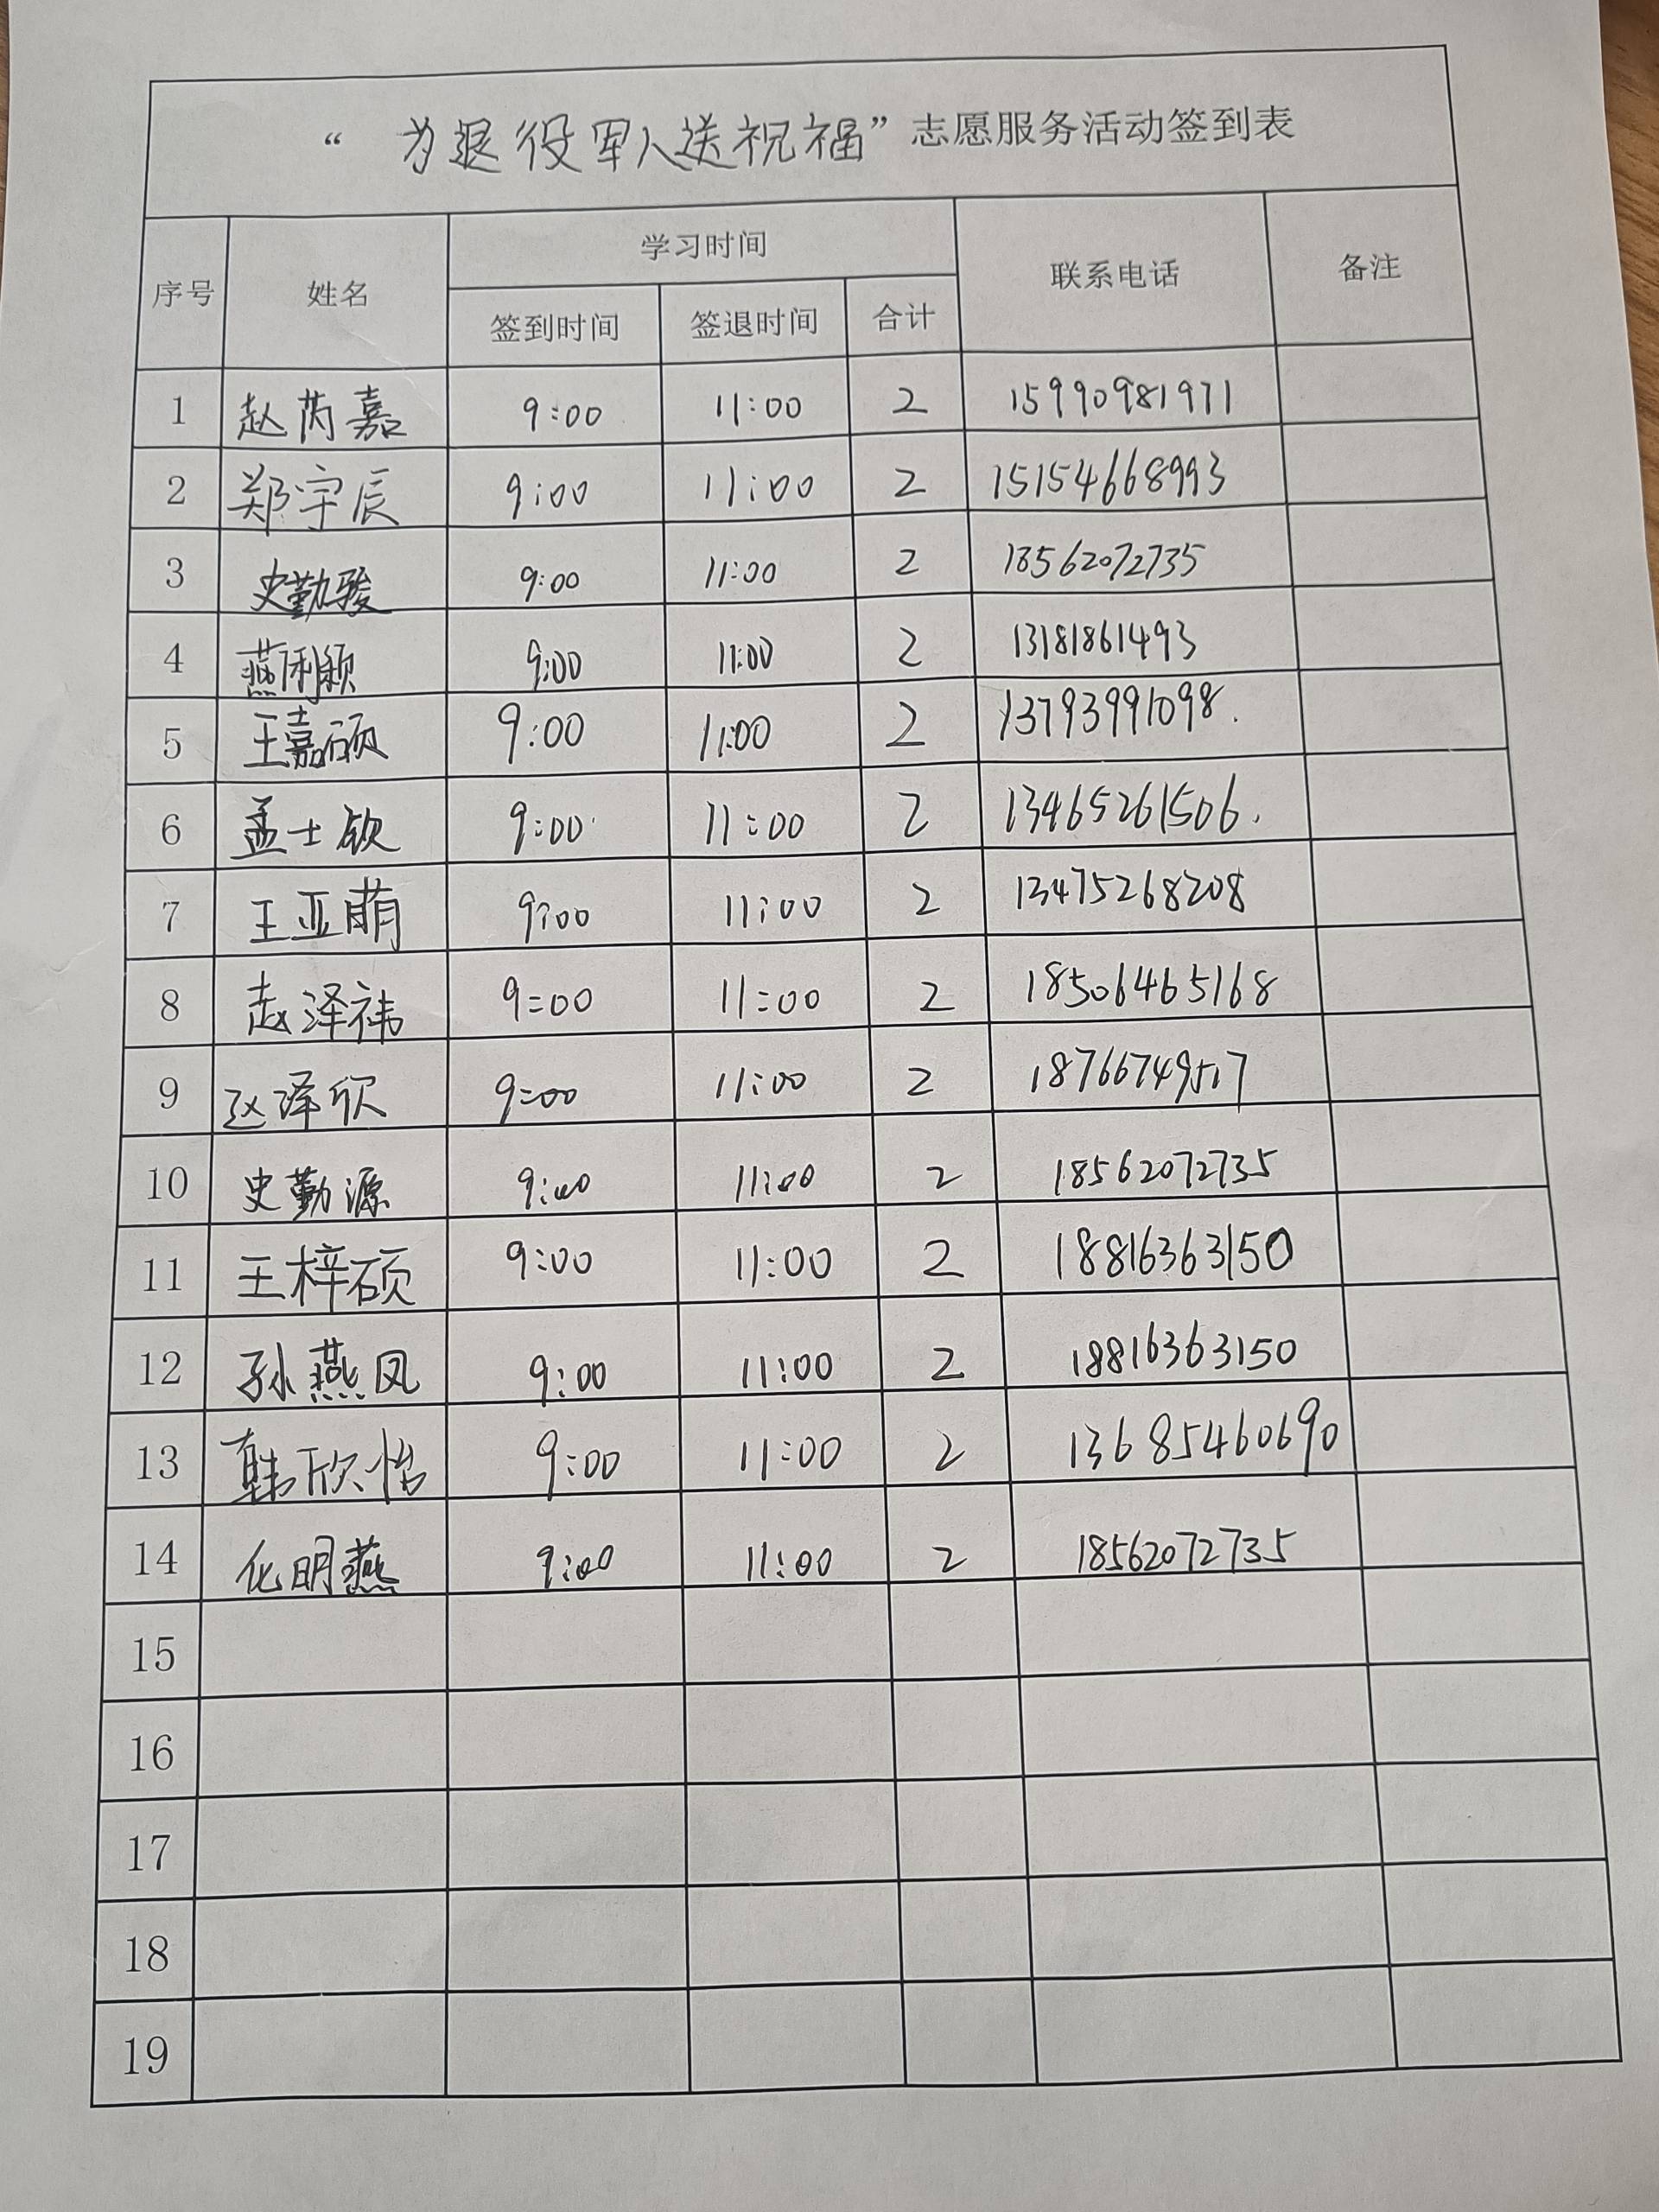 “为退役军人送祝福”志愿服务活动签到表
序号 姓名 学习时间 联系电话 备注
签到时间 签退时间 合计
1 赵芮嘉 9:00 11:00 2 15990981971
2 郑宇辰 9:00 11:00 2 15154668993
3 史勤骏 9:00 11:00 2 18562072735
4 燕俐颖 9:00 11:00 2 13181861493
5 王嘉硕 9:00 11:00 2 13793991098.
6 孟士钦 9:00 11:00 2 13465261506.
7 王亚萌 9:00 11:00 2 13475268208
8 赵泽祎 9:00 11:00 2 18506465168
9 赵泽欣 9:00 11:00 2 18766749517
10 史勤源 9:00 11:00 2 18562072735
11 王梓硕 9:00 11:00 2 18816363150
12 孙燕凤 9:00 11:00 2 18816363150
13 韩欣怡 9:00 11:00 2 13685460690
14 化明燕 9:00 11:00 2 18562072735
15
16
17
18
19